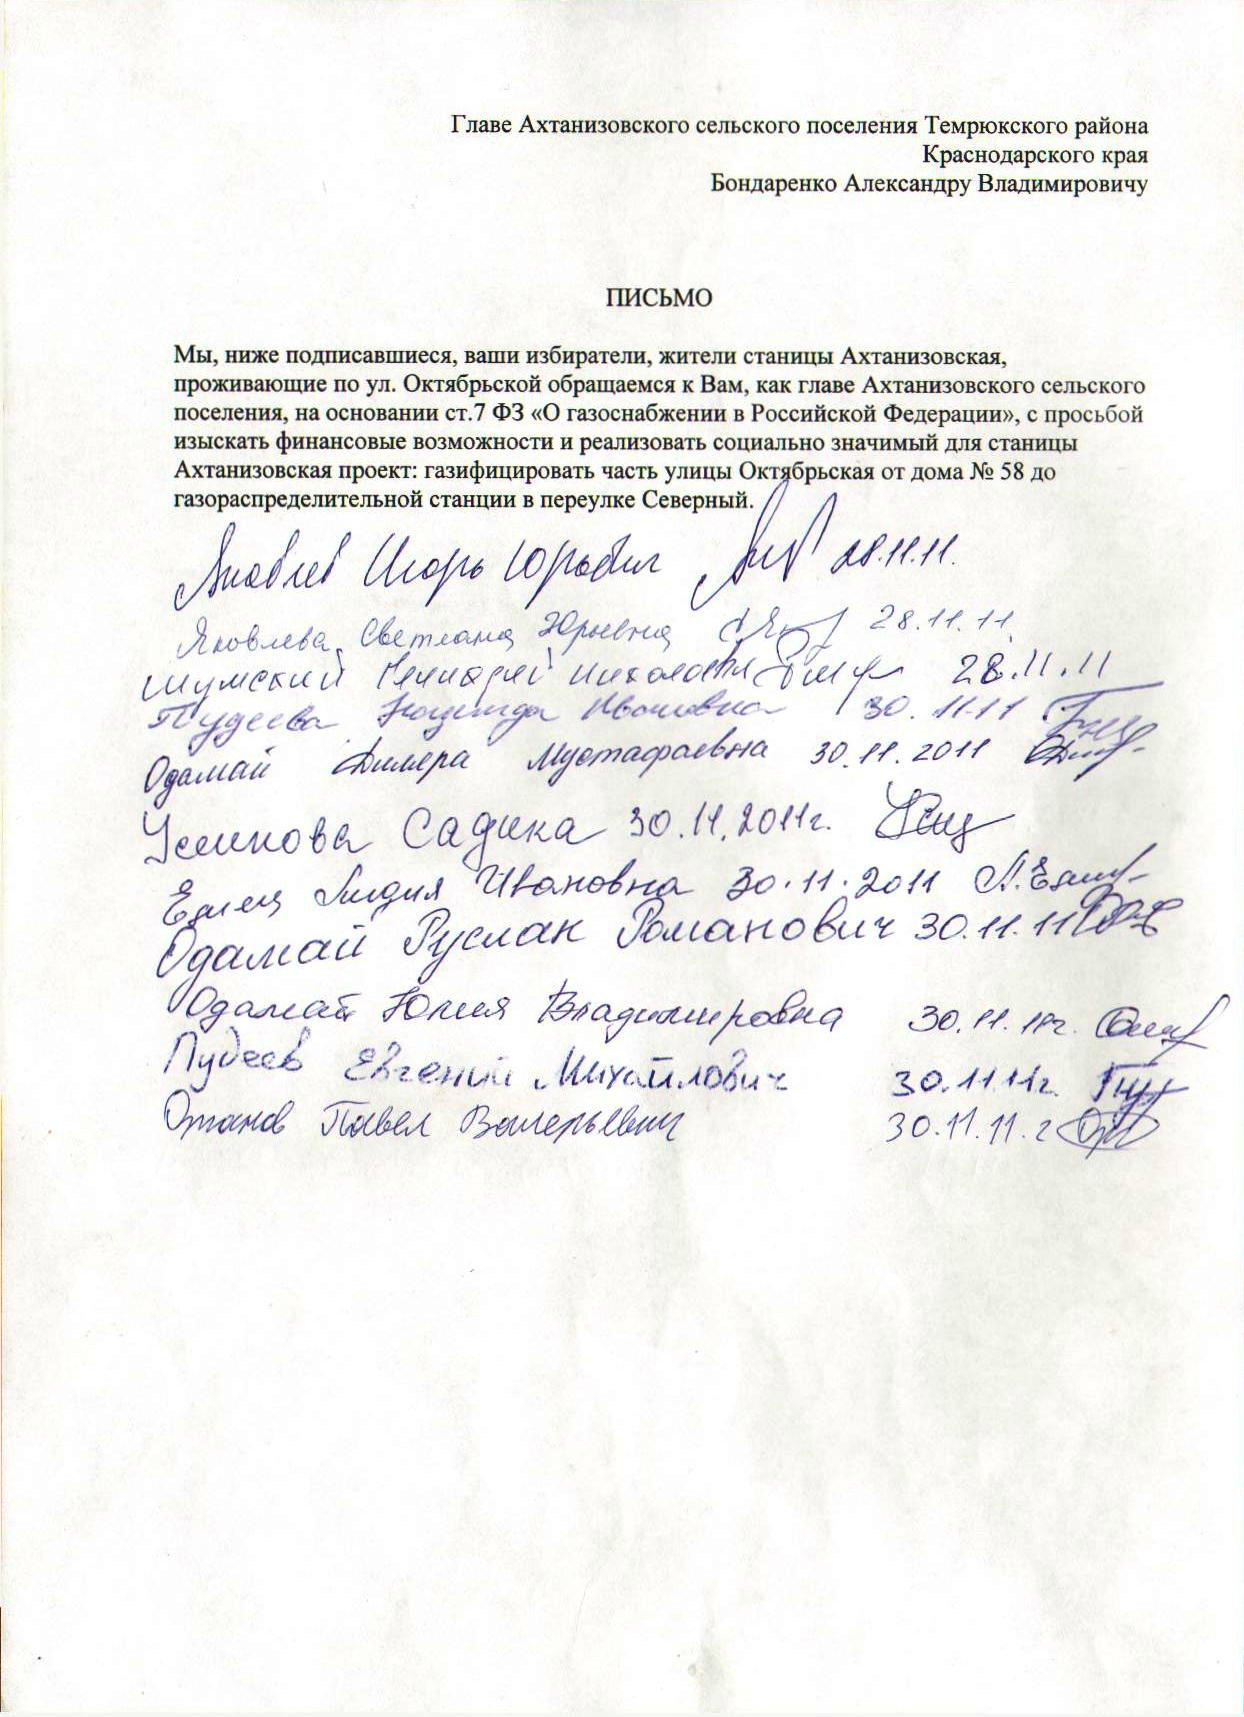 Главе Ахтанизовского сельского поселения Темрюкского района
Краснодарского края
Бондаренко Александру Владимировичу
ПИСЬМО
Мы, ниже подписавшиеся, ваши избиратели, жители станицы Ахтанизовская,
проживающие по ул. Октябрьской обращаемся к Вам, как главе Ахтанизовского сельского
поселения, на основании ст.7 ФЗ «О газоснабжении в Российской Федерации», с просьбой
изыскать финансовые возможности и реализовать социально значимый для станицы
Ахтанизовская проект: газифицировать часть улицы Октябрьская от дома № 58 до
газораспределительной станции в переулке Северный.
Яковлев Игорь Юрьевич 28.11.11.
Яковлева Светлана Юрьевна 28.11.11.
Шумский Николаевич 28.11.11
Пудеева Надежда Ивановна 30.11.11
Одамай Диляра Мустафаевна 30.11.2011
Усеинова Садика 30.11.2011г.
Елец Лидия Ивановна 30.11.2011
Одамай Руслан Романович 30.11.11
Одамай Юлия Владимировна 30.11.11г.
Пудеев Евгений Михайлович 30.11.11г.
Павел Валерьевич 30.11.11.г